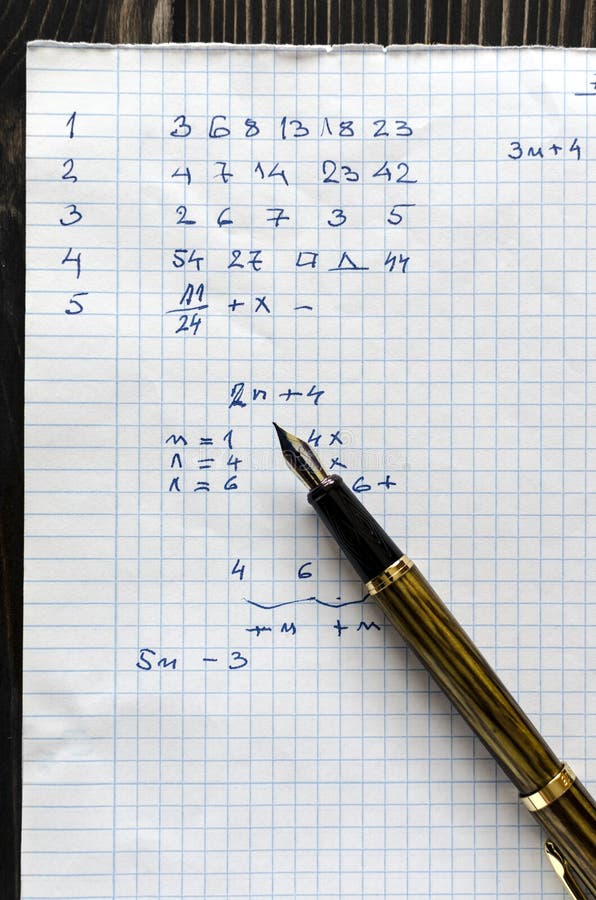 1 3 6 8 13 18 23
3n+4
2 4 7 14 23 42
3 2 6 7 3 5
4 54 27 □ △ 44
5 11/24 + x -
2n+4
n = 1 4x
n = 4 x
n = 6 6+
4 6
+n +n
5n - 3